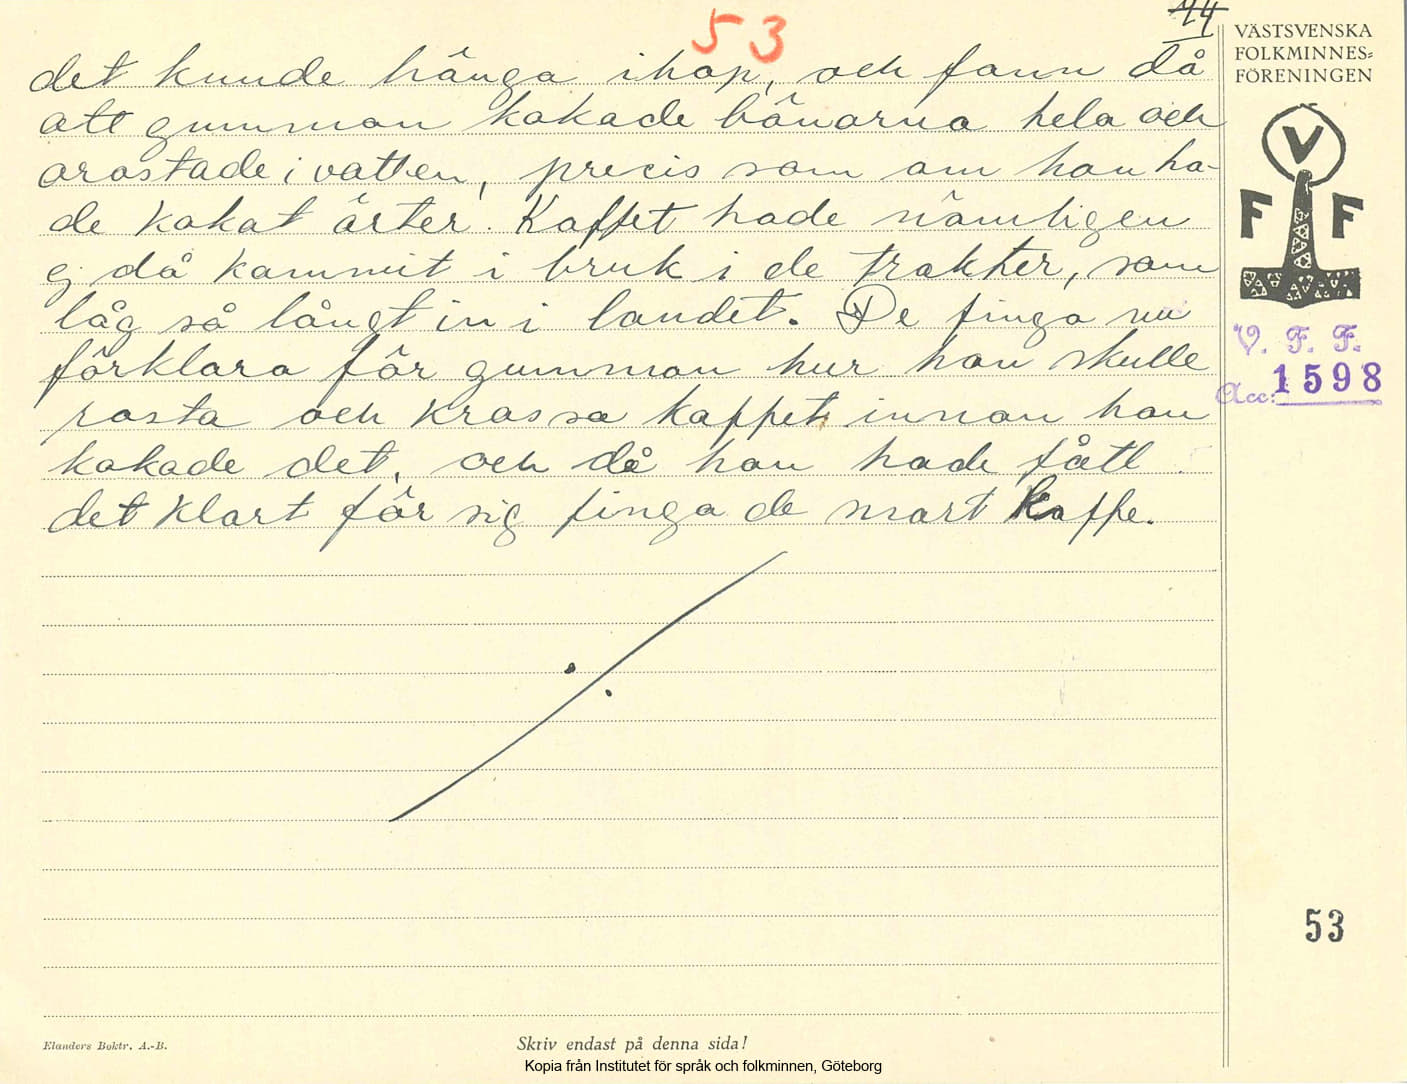 44
53
det kunde hänga ihop, och fann då
att gumman kokade bönorna hela och
orostade i vatten, precis som om hon ha-
de kokat ärter. Kaffet hade nämligen
ej då kommit i bruk i de trakter, som
låg så långt in i landet. De finga nu
förklara för gumman hur hon skulle
rosta och krossa kaffet innan hon
kokade det, och då hon hade fått
det klart för sig finga de smart kaffe.
VÄSTSVENSKA
FOLKMINNES-
FÖRENINGEN
V
F F
V. F. F.
Acc: 1598
53
Elanders Boktr. A.-B.
Skriv endast på denna sida!
Kopia från Institutet för språk och folkminnen, Göteborg